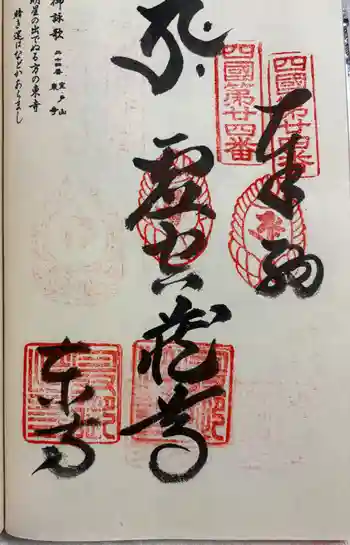 四國第廿四番
四國第廿四番
奉納
虚空蔵尊
東寺
御詠歌 二十四番 室戸山 東寺
明星の出でぬる方の東寺
暗き迷はなどかあらまし